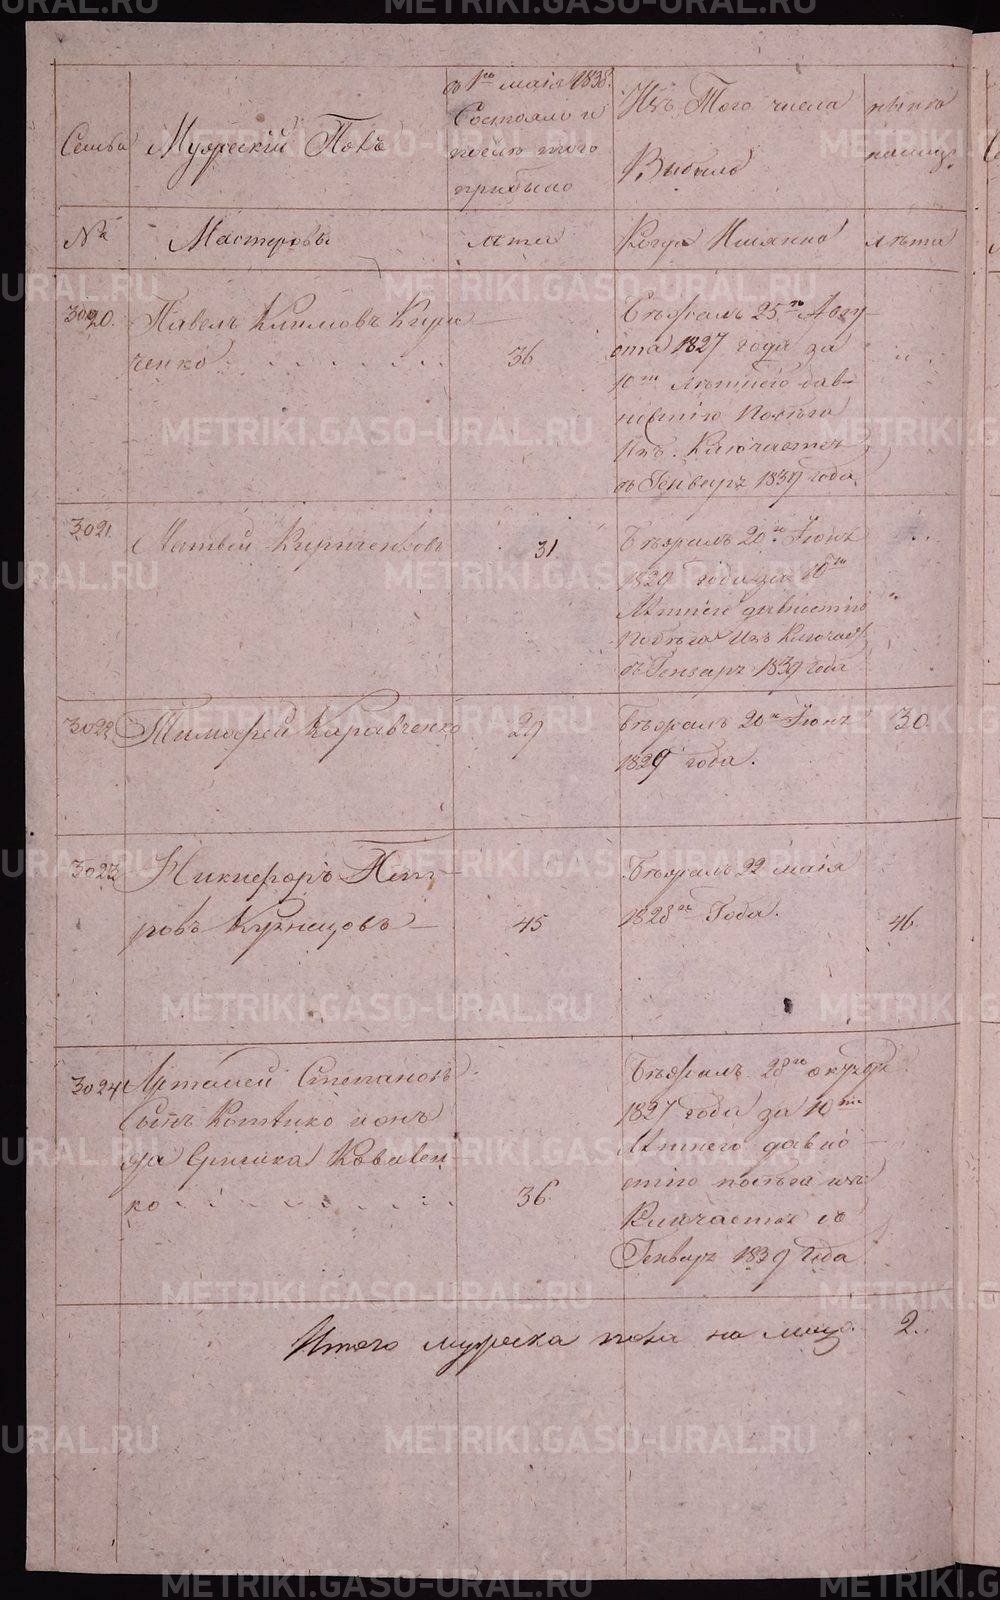 Семьи
Мужескій Полъ
съ 1го маія 1838
Состояло и
после того
прибыло
Изъ Того числа
Выбыло
ныне
налицо
№
Мастеровъ
лета
Когда Имянно
лета
3020.
Павелъ Климовъ Кири
ченко
36
Бѣжалъ 25го Авгу
ста 1827 года за
10ти лѣтнего дав
ностію Побѣга
Изъ Ключается
въ Генварѣ 1839 года
3021.
Матвей Кириченковъ
31
Бѣжалъ 20го Июнѣ
1829 года за 10ти
Лѣтнего давностію
Побѣга Изъ Ключае
въ Генварѣ 1839 года
3022
Тимофей Каравченко
29
Бѣжалъ 20го Июнѣ
1829 года.
30.
3023
Никифоръ Пет
ровъ Кузнецовъ
45
Бѣжалъ 22 маія
1828го Года.
46.
3024
Артамей Степановъ
Сынъ Котвико и онъ
да Ковален
ко
36.
Бѣжалъ 28го октября
1827 года за 10ти
Лѣтнего давно
стію побѣга изъ
Ключается съ
Генварѣ 1839 Года
Итого мужеска пола на лицо
2.
METRIKI.GASO-URAL.RU